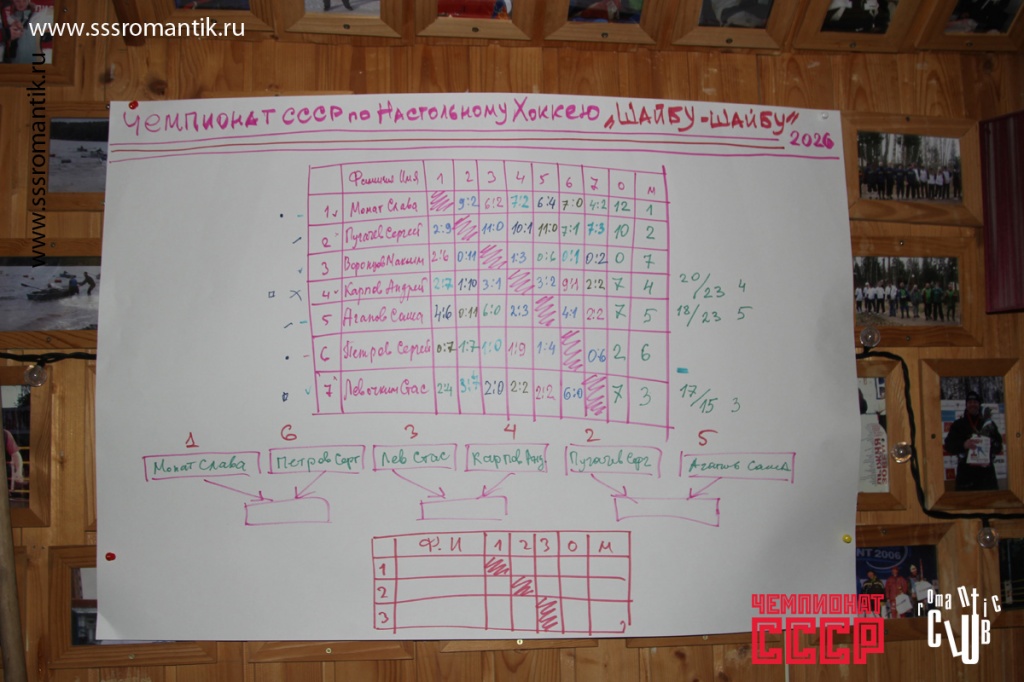 www.sssromantik.ru
www.sssromantik.ru
Чемпионат СССР по Настольному Хоккею „Шайбу-Шайбу"
2026
Фамилия Имя 1 2 3 4 5 6 7 О М
1 Монат Слава 9:2 6:2 7:2 6:4 7:0 4:2 12 1
2 Пугачев Сергей 2:9 11:0 10:1 11:0 7:1 7:3 10 2
3 Воронцов Максим 2:6 0:11 1:3 0:6 0:1 0:2 0 7
4 Карпов Андрей 2:7 1:10 3:1 3:2 9:1 2:2 7 4 20/23 4
5 Агапов Саша 4:6 0:11 6:0 2:3 4:1 2:2 7 5 18/23 5
6 Петров Сергей 0:7 1:7 1:0 1:9 1:4 0:6 2 6
7 Левочкин Стас 2:4 3:7 2:0 2:2 2:2 6:0 7 3 17/15 3
1 6 3 4 2 5
Монат Слава Петров Серг Лев Стас Карпов Анд Пугачев Серг Саша
Ф. И 1 2 3 О М
1
2
3
NT 2006
ЧЕМПИОНАТ
СССР
romantic
CLUB